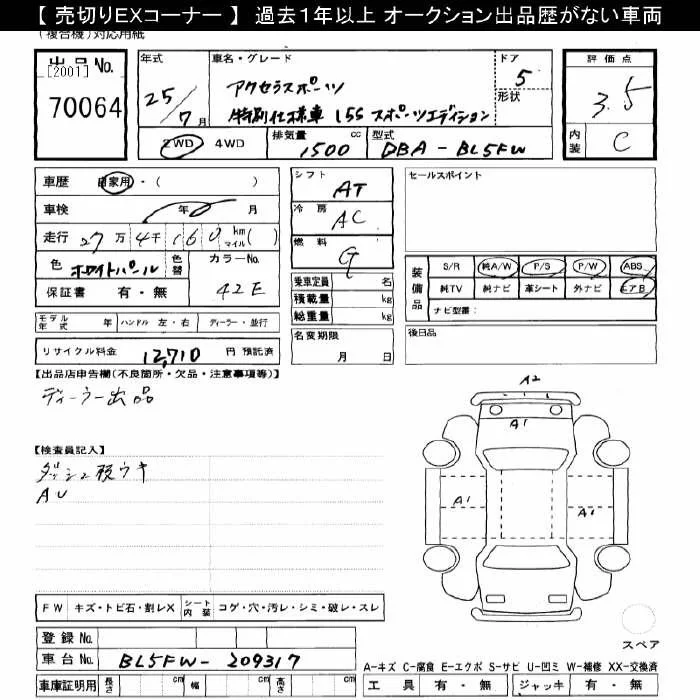 【 売切りEXコーナー 】 過去1年以上 オークション出品歴がない車両
(複合機)対応用紙
出品No. 年式 車名・グレード ドア 評価点
[2001]
70064 25/7月 アクセラスポーツ 5 3.5
形状
特別仕様車 15S スポーツエディション
2WD 4WD 排気量 1500 cc 型式 DBA-BL5FW 内装 C
車歴 自家用・( )
車検 年 月
走行 27万4千160 km マイル( )
色 ホワイトパール 色替 カラーNo. 42E
保証書 有・無
モデル年式 年 ハンドル 左・右 ディーラー・並行
リサイクル料金 12,710 円 預託済
シフト AT
冷房 AC
燃料 G
乗車定員 名
積載量 kg
総重量 kg
名変期限 月 日
セールスポイント
装備品 S/R 純A/W P/S P/W ABS
純TV 純ナビ 革シート 外ナビ エアB
ナビ型番:
後日品
【出品店申告欄(不良箇所・欠品・注意事項等)】
ディーラー出品
【検査員記入】
ダッシュ板ウキ
AU
A2
A1
A1
A1
スペア
FW キズ・トビ石・割レX シート内装 コゲ・穴・汚レ・シミ・破レ・スレ
登録No.
車台No. BL5FW-209317
車庫証明用 長さ cm 幅 cm 高さ cm
A-キズ C-腐食 E-エクボ S-サビ U-凹ミ W-補修 XX-交換済
工具 有・無 ジャッキ 有・無